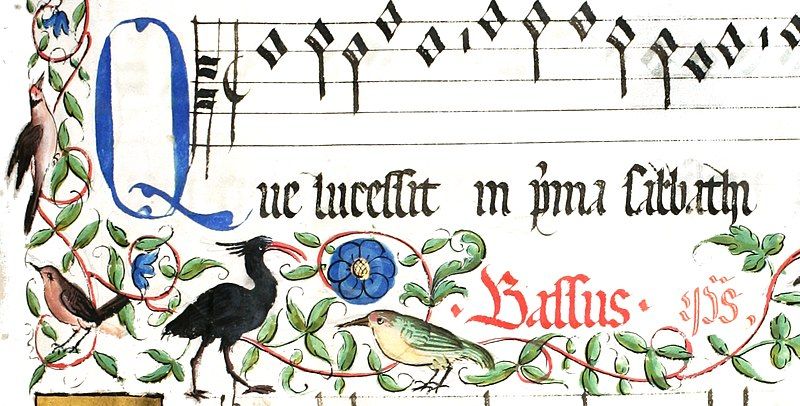 Que luceſſit in p̉ma ſabbathi
· Baſſus ·